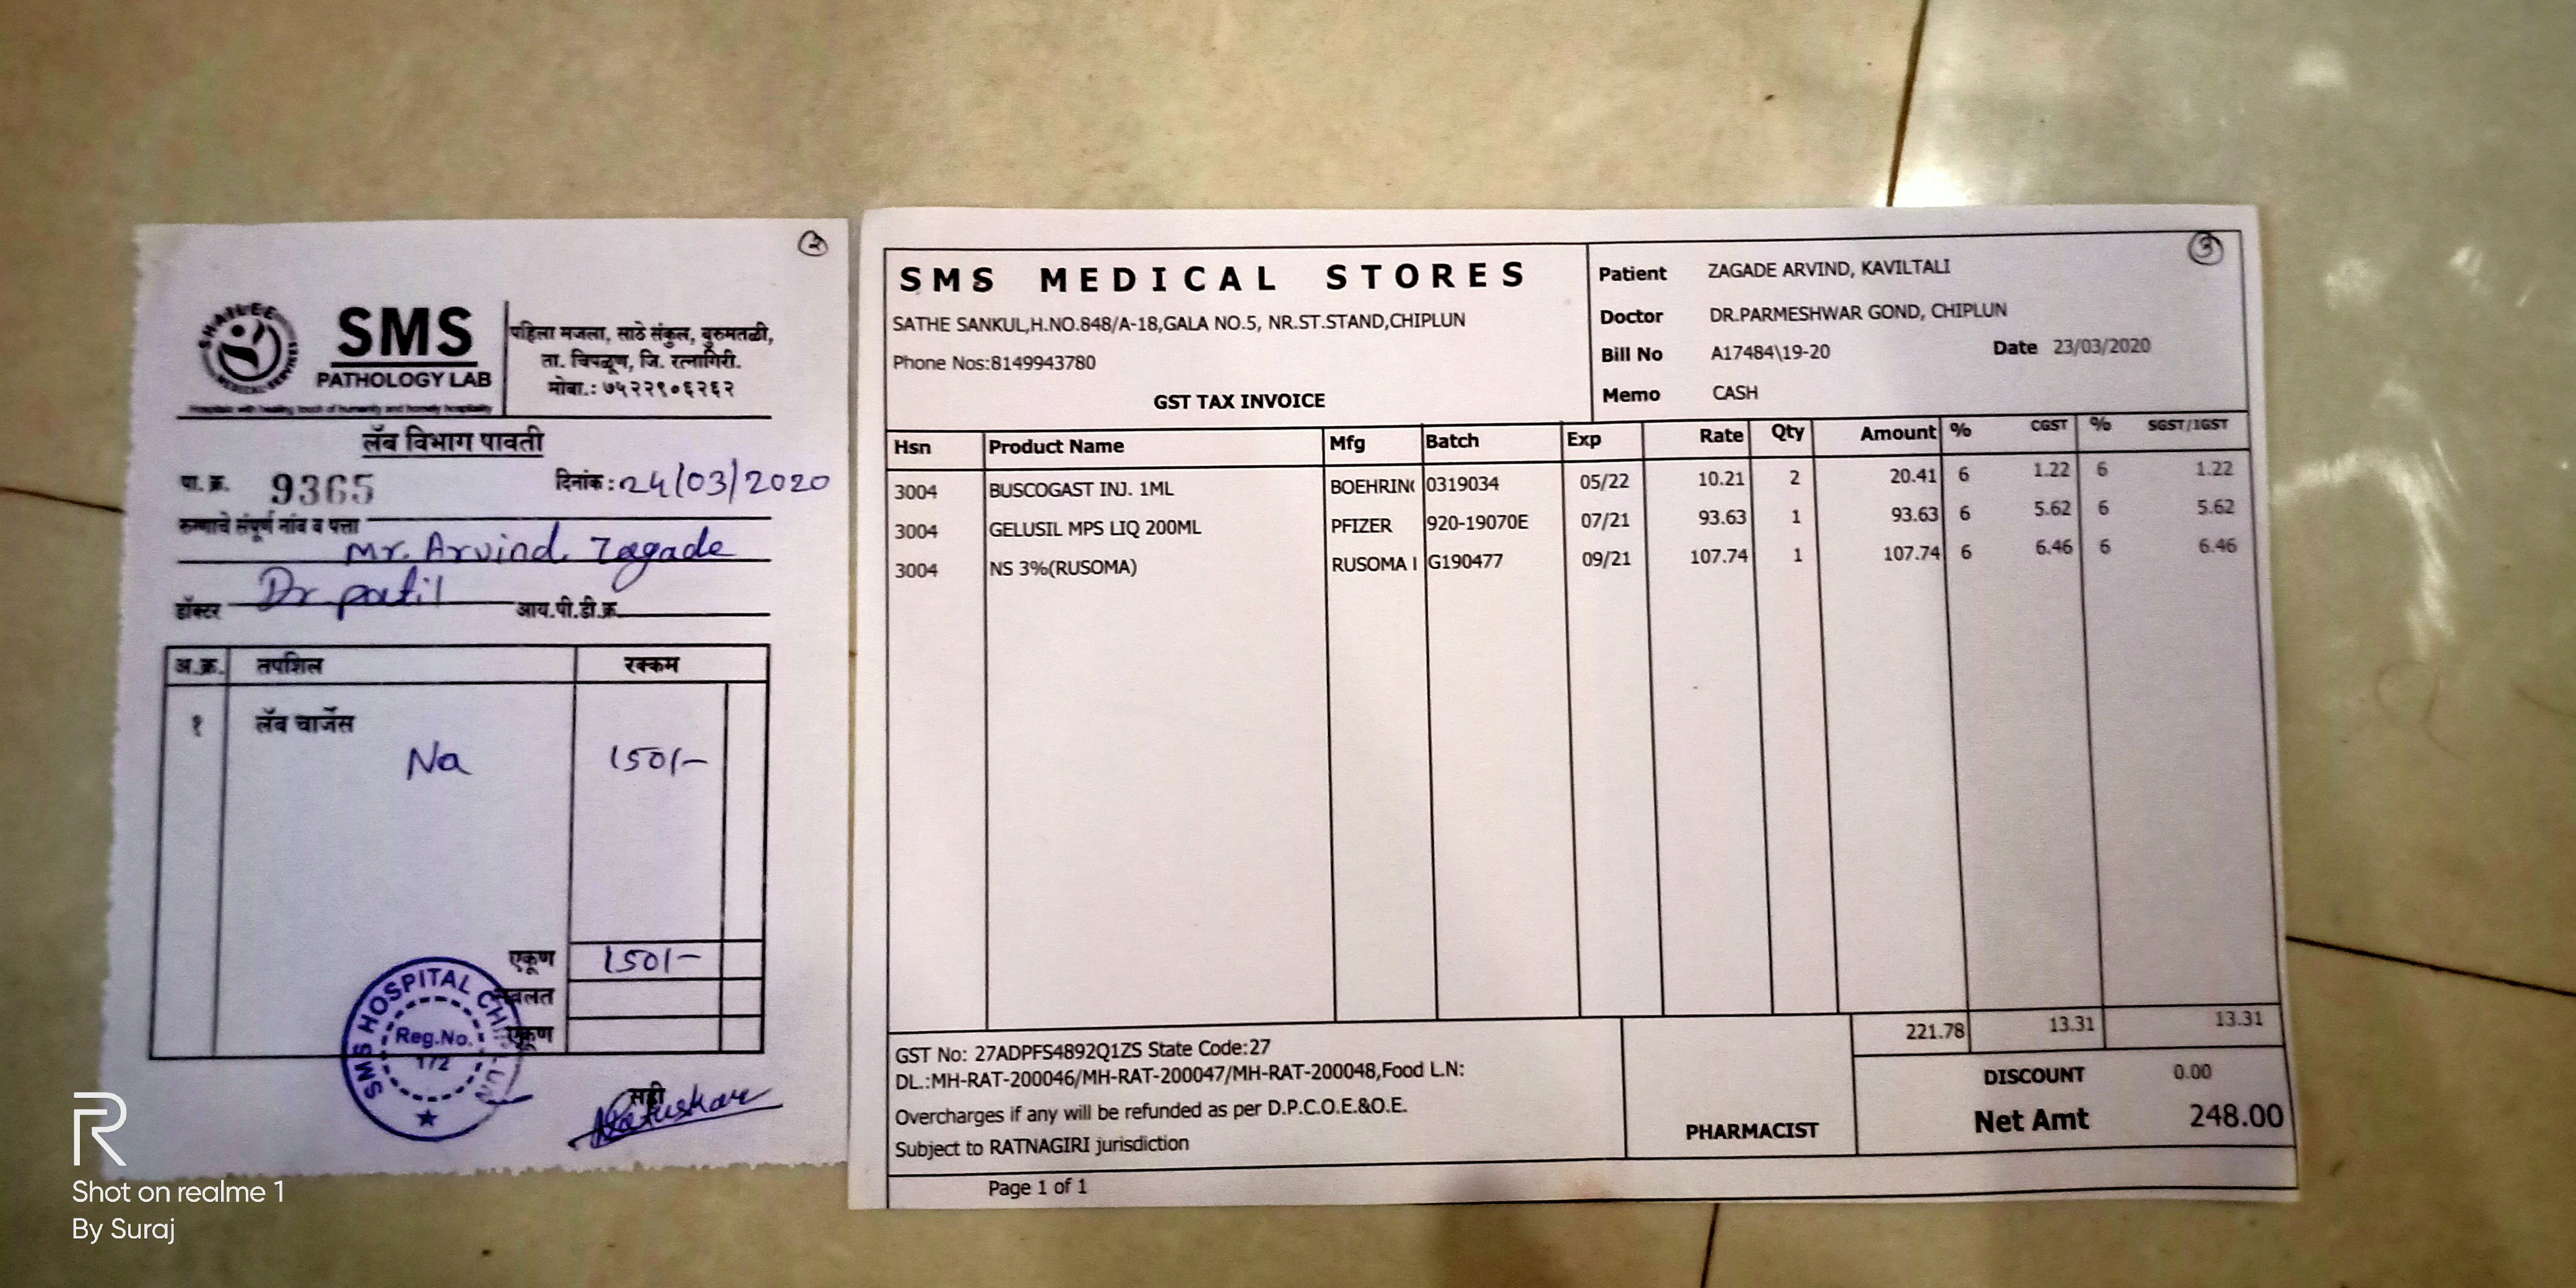 २
SHAILEE
MEDICAL SERVICES
SMS
PATHOLOGY LAB
Hospitals with healing touch of humanity and homely hospitality
पहिला मजला, साठे संकुल, बुरुमतळी,
ता. चिपळूण, जि. रत्नागिरी.
मोबा.: ७५२२९०६२६२
लॅब विभाग पावती
पा. क्र. 9365 दिनांक : 24/03/2020
रुग्णाचे संपूर्ण नांव व पत्ता
Mr. Arvind. Zagade
डॉक्टर Dr patil आय.पी.डी.क्र.
अ.क्र. तपशिल रक्कम
१ लॅब चार्जेस
Na 150/-
एकूण 150/-
एकूण
SMS HOSPITAL CHIPLUN
Reg.No.
172
सही
3
SMS MEDICAL STORES
SATHE SANKUL,H.NO.848/A-18,GALA NO.5, NR.ST.STAND,CHIPLUN
Phone Nos:8149943780
GST TAX INVOICE
Patient ZAGADE ARVIND, KAVILTALI
Doctor DR.PARMESHWAR GOND, CHIPLUN
Bill No A17484\19-20 Date 23/03/2020
Memo CASH
Hsn Product Name Mfg Batch Exp Rate Qty Amount % CGST % SGST/IGST
3004 BUSCOGAST INJ. 1ML BOEHRIN 0319034 05/22 10.21 2 20.41 6 1.22 6 1.22
3004 GELUSIL MPS LIQ 200ML PFIZER 920-19070E 07/21 93.63 1 93.63 6 5.62 6 5.62
3004 NS 3%(RUSOMA) RUSOMA G190477 09/21 107.74 1 107.74 6 6.46 6 6.46
221.78 13.31 13.31
GST No: 27ADPFS4892Q1ZS State Code:27
DL.:MH-RAT-200046/MH-RAT-200047/MH-RAT-200048,Food L.N:
Overcharges if any will be refunded as per D.P.C.O.E.&O.E.
Subject to RATNAGIRI jurisdiction
PHARMACIST
DISCOUNT 0.00
Net Amt 248.00
Page 1 of 1
R
Shot on realme 1
By Suraj